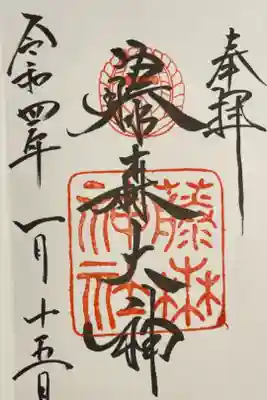 奉拝
藤森大神
藤森
神社
令和四年 一月十五日